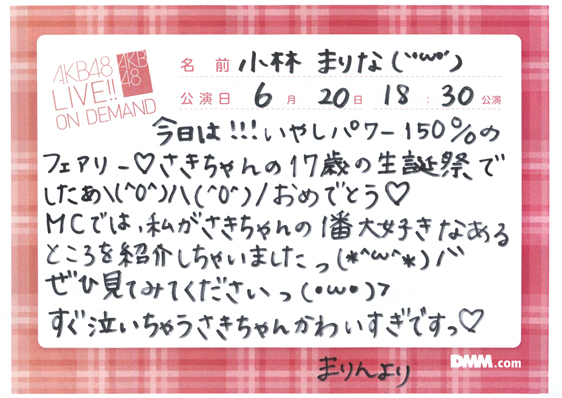 AKB48
LIVE!!
ON DEMAND
AKB
48
名前 小林 まりな(`・ω・´)
公演日 6月 20日 18:30公演
今日は!!!いやしパワー150%の
フェアリー♡さきちゃんの17歳の生誕祭で
したあ\(^O^)/\(^O^)/おめでとう♡
MCでは、私がさきちゃんの1番大好きなある
ところを紹介しちゃいましたっ(*^ω^*)ノ"
ぜひ見てみてくださいっ(・ω・)?
すぐ泣いちゃうさきちゃんかわいすぎですっ♡
まりんより
DMM.com